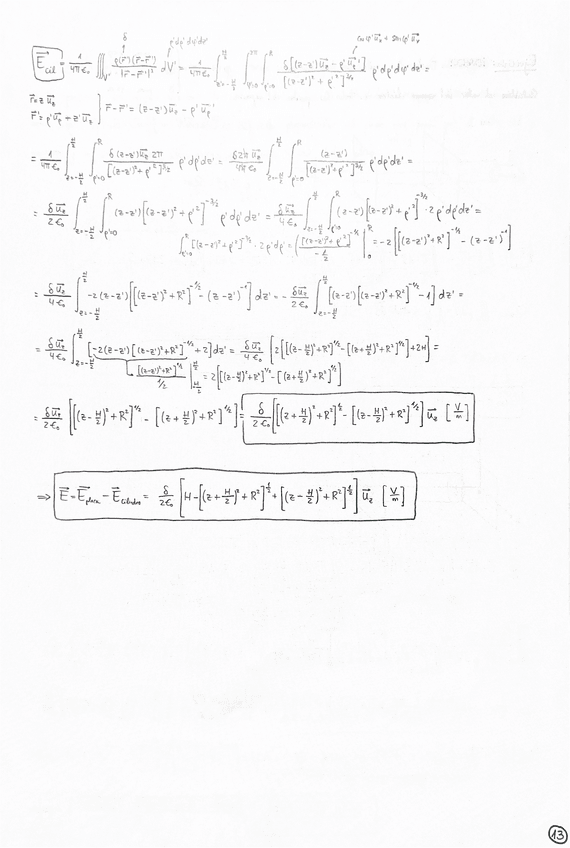 δ ρ'dρ'dφ'dz' cosφ' u⃗x + senφ' u⃗y
E⃗cil = 1/(4πε₀) ∭V' ρ(r⃗')(r⃗-r⃗')/|r⃗-r⃗'|³ dV' = 1/(4πε₀) ∫_{z=-H/2}^{H/2} ∫_{φ'=0}^{2π} ∫_{ρ'=0}^{R} δ[(z-z')u⃗z - ρ'u⃗ρ']/[(z-z')²+ρ'²]^{3/2} ρ'dρ'dφ'dz' =
r⃗ = z u⃗z
r⃗' = ρ'u⃗ρ' + z'u⃗z ] r⃗-r⃗' = (z-z')u⃗z - ρ'u⃗ρ'
= 1/(4πε₀) ∫_{z=-H/2}^{H/2} ∫_{ρ'=0}^{R} δ(z-z')u⃗z 2π/[(z-z')²+ρ'²]^{3/2} ρ'dρ'dz' = δ2π u⃗z/(4πε₀) ∫_{z=-H/2}^{H/2} ∫_{ρ'=0}^{R} (z-z')/[(z-z')²+ρ'²]^{3/2} ρ'dρ'dz' =
= δu⃗z/(2ε₀) ∫_{z=-H/2}^{H/2} ∫_{ρ'=0}^{R} (z-z')[(z-z')²+ρ'²]^{-3/2} ρ'dρ'dz' = δu⃗z/(4ε₀) ∫_{z=-H/2}^{H/2} ∫_{ρ'=0}^{R} (z-z')[(z-z')²+ρ'²]^{-3/2} · 2ρ'dρ'dz' =
∫_{ρ'=0}^{R} [(z-z')²+ρ'²]^{-3/2} · 2ρ'dρ' = ([(z-z')²+ρ'²]^{-1/2}/(-1/2)) |_0^R = -2[[(z-z')²+R²]^{-1/2} - (z-z')^{-1}]
= δu⃗z/(4ε₀) ∫_{z=-H/2}^{H/2} -2(z-z')[[(z-z')²+R²]^{-1/2} - (z-z')^{-1}] dz' = - δu⃗z/(2ε₀) ∫_{z=-H/2}^{H/2} [(z-z')[(z-z')²+R²]^{-1/2} - 1] dz' =
= δu⃗z/(4ε₀) ∫_{z=-H/2}^{H/2} [-2(z-z')[(z-z')²+R²]^{-1/2} + 2] dz' = δu⃗z/(4ε₀) [2[[(z-H/2)²+R²]^{1/2} - [(z+H/2)²+R²]^{1/2}] + 2H] =
[(z-z')²+R²]^{1/2}/(1/2) |_{-H/2}^{H/2} = 2[[(z-H/2)²+R²]^{1/2} - [(z+H/2)²+R²]^{1/2}]
= δu⃗z/(2ε₀) [[(z-H/2)²+R²]^{1/2} - [(z+H/2)²+R²]^{1/2}] = δ/(2ε₀) [[(z+H/2)²+R²]^{1/2} - [(z-H/2)²+R²]^{1/2}] u⃗z [V/m]
⇒ E⃗ = E⃗placa - E⃗cilindro = δ/(2ε₀) [H - [(z+H/2)²+R²]^{1/2} + [(z-H/2)²+R²]^{1/2}] u⃗z [V/m]
13